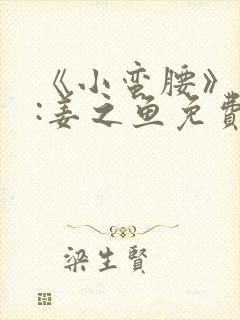 《小蛮腰》
:姜之鱼免費
梁生賢